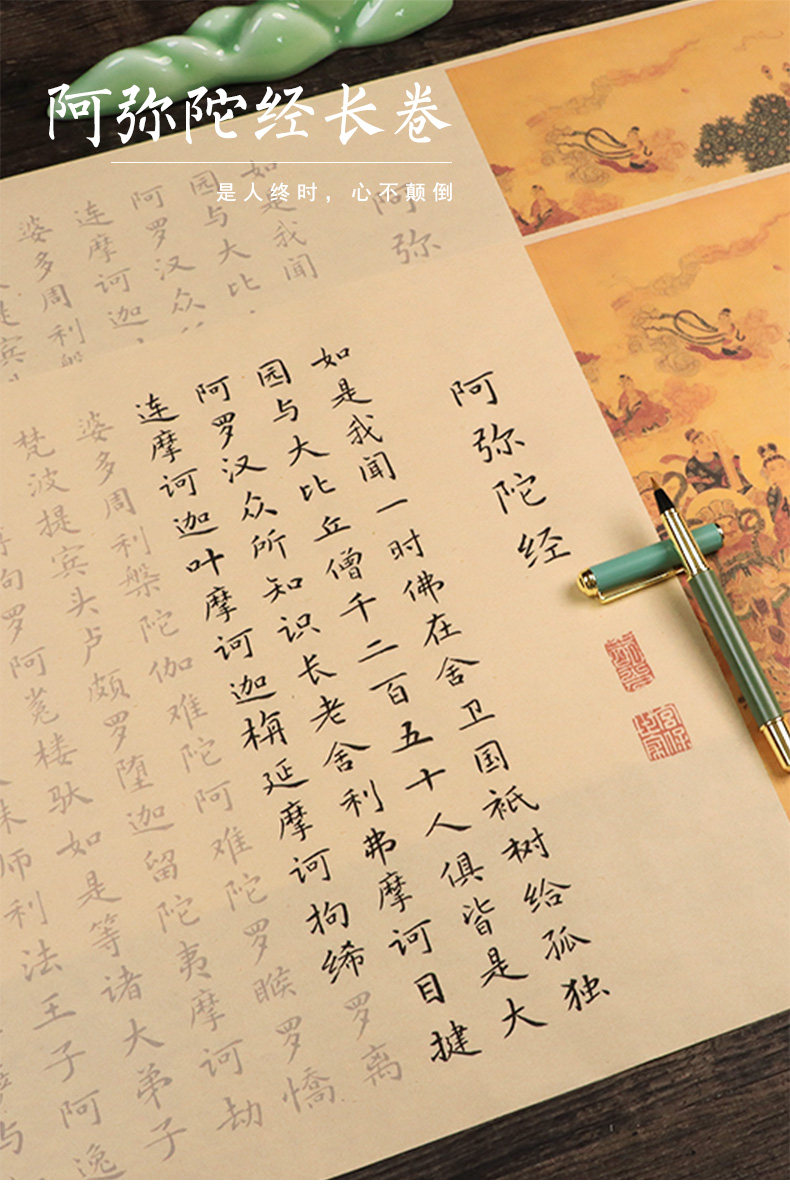 阿弥陀经长卷
是人终时，心不颠倒
阿弥
如是我闻
园与大比
阿罗汉众
连摩诃迦
婆多周利
阿弥陀经
如是我闻一时佛在舍卫国祇树给孤独
园与大比丘僧千二百五十人俱皆是大
阿罗汉众所知识长老舍利弗摩诃目揵
连摩诃迦叶摩诃迦栴延摩诃拘絺罗离
婆多周利槃陀伽难陀阿难陀罗睺罗憍
梵波提宾头卢颇罗堕迦留陀夷摩诃劫
罗阿楼驮如是等诸大弟子
师利法王子阿逸
与